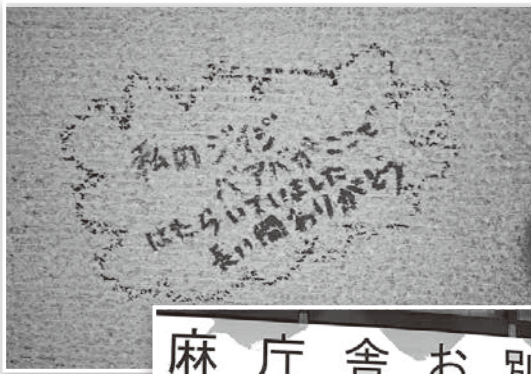 私のジィジ
ババがここで
はたらいていました
長い間ありがとう
麻庁舎お別